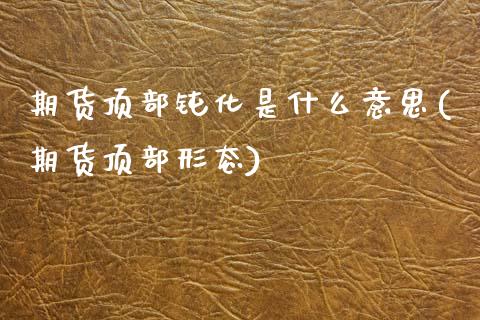 期货顶部钝化是什么意思(
期货顶部形态)